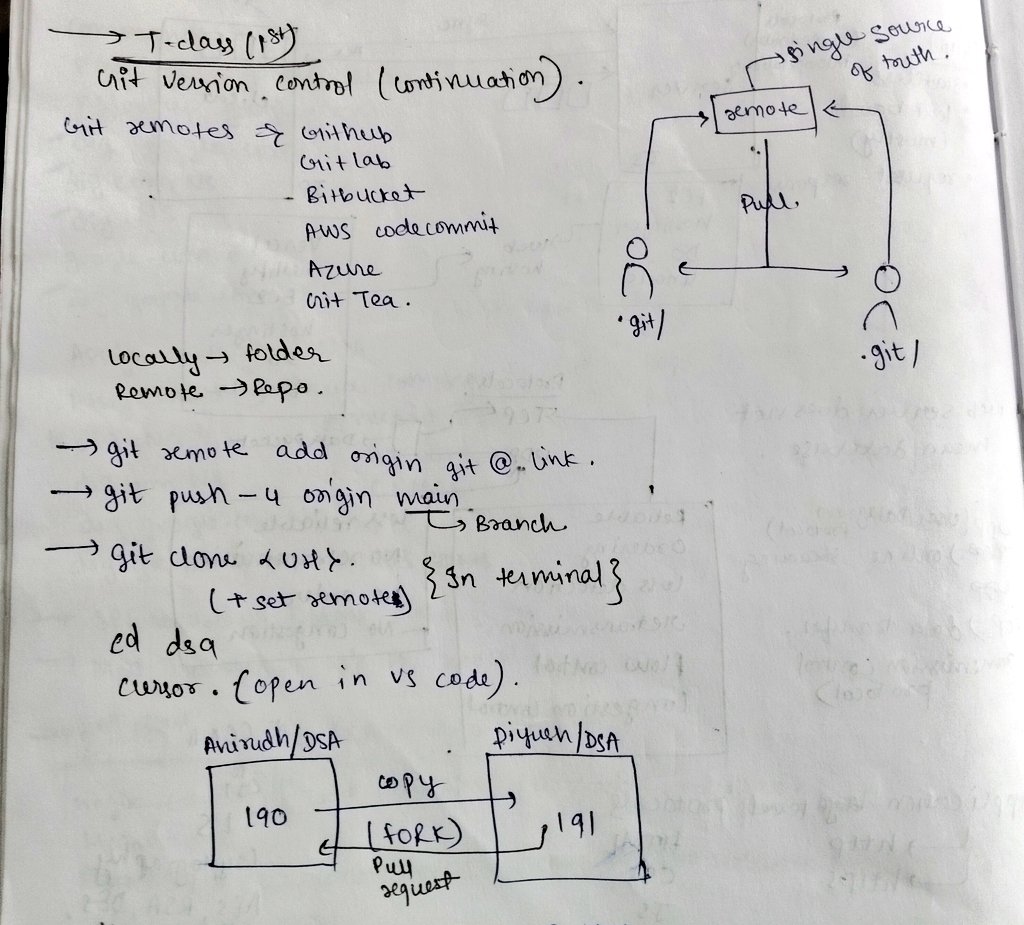 → T-class (1st)
Git Version control (continuation).
Git remotes ⇒ Github
Gitlab
- Bitbucket
AWS codecommit
Azure
Git Tea.
single source
of truth.
remote
Pull.
.git/
.git/
locally → folder
Remote → Repo.
→ git remote add origin git @.. link.
→ git push -u origin main
↳ Branch
→ git clone <url>.
(+ set remotes) {In terminal}
cd dsa
cursor . (open in vs code).
Anirudh/DSA
Piyush/DSA
190
copy
(FORK)
191
Pull
request